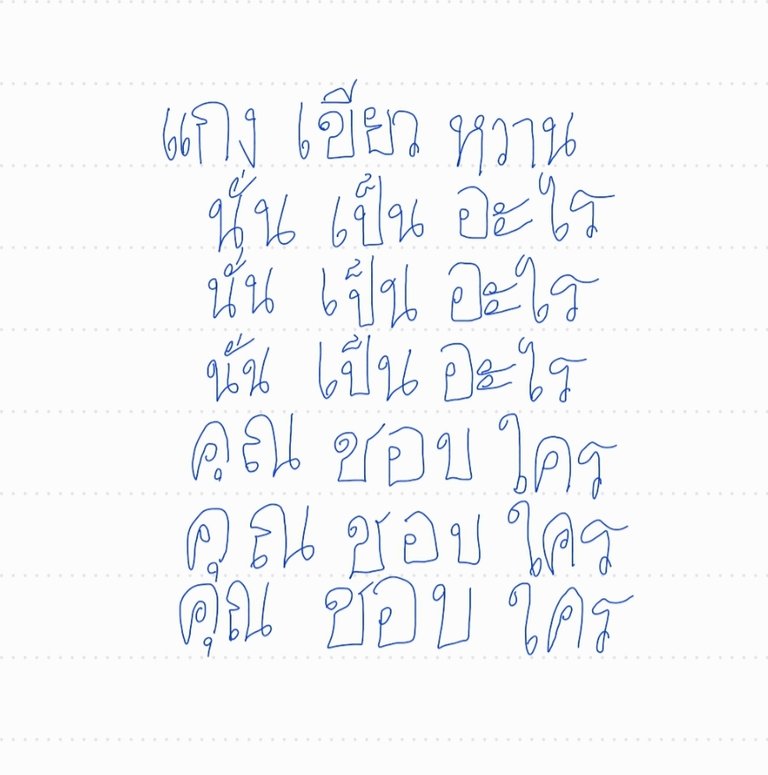 แกง เขียว หวาน
นั่น เป็น อะไร
นั่น เป็น อะไร
นั่น เป็น อะไร
คุณ ชอบ ใคร
คุณ ชอบ ใคร
คุณ ชอบ ใคร